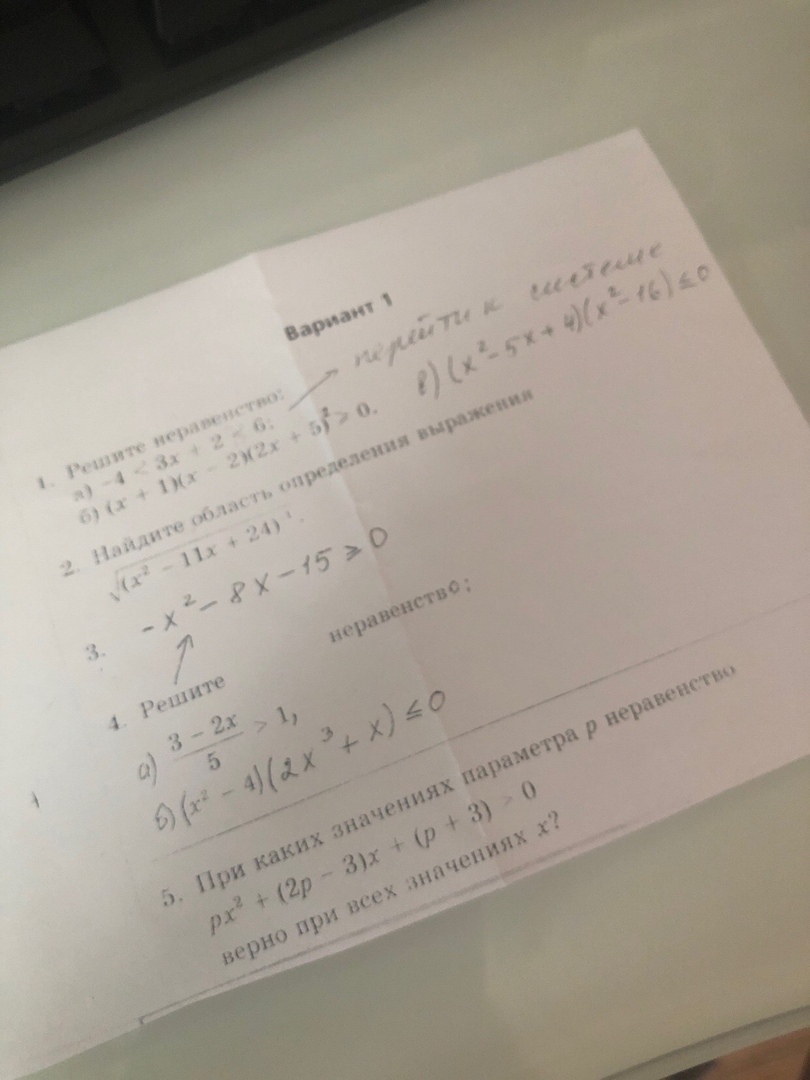 Вариант 1
перейти к системе
1. Решите неравенство:
а) -4 < 3x + 2 < 6;
б) (x + 1)(x - 2)(2x + 5)² > 0.
в) (x² - 5x + 4)(x² - 16) ≤ 0
2. Найдите область определения выражения
√(x² - 11x + 24)
3. -x² - 8x - 15 ≥ 0
4. Решите неравенство;
а) (3 - 2x)/5 > 1,
б) (x² - 4)(2x³ + x) ≤ 0
5. При каких значениях параметра p неравенство
px² + (2p - 3)x + (p + 3) > 0
верно при всех значениях x?